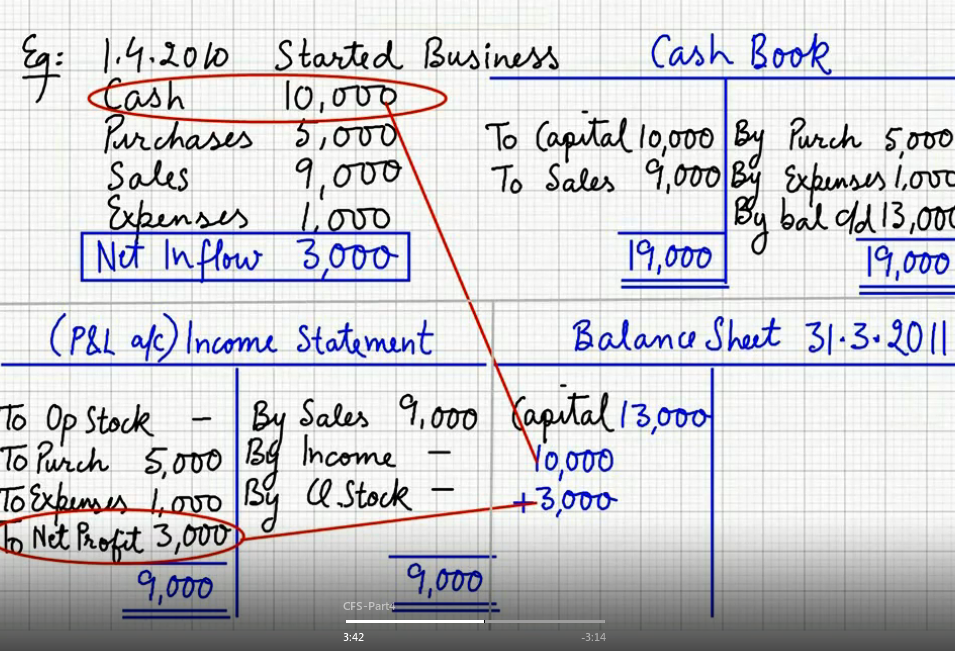 Eg: 1.4.2010 Started Business
Cash 10,000
Purchases 5,000
Sales 9,000
Expenses 1,000
Net Inflow 3,000
Cash Book
To Capital 10,000 By Purch 5,000
To Sales 9,000 By Expenses 1,000
By bal c/d 13,000
19,000 19,000
(P&L a/c) Income Statement
To Op Stock - By Sales 9,000
To Purch 5,000 By Income -
To Expenses 1,000 By Cl. Stock -
To Net Profit 3,000
9,000 9,000
Balance Sheet 31.3.2011
Capital 13,000
10,000
+3,000
CFS-Part4
3:42 -3:14